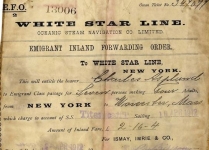 E.F.O.
13006
WHITE STAR LINE.
OCEANIC STEAM NAVIGATION CO. LIMITED.
EMIGRANT INLAND FORWARDING ORDER.
To WHITE STAR LINE,
NEW YORK.
This will entitle the bearer
to Emigrant Class passage for Seven persons making Four Adults,
from NEW YORK to Worcester, Mass
which charge to account of S.S.
Amount of Inland Fare,
For ISMAY, IMRIE & CO.